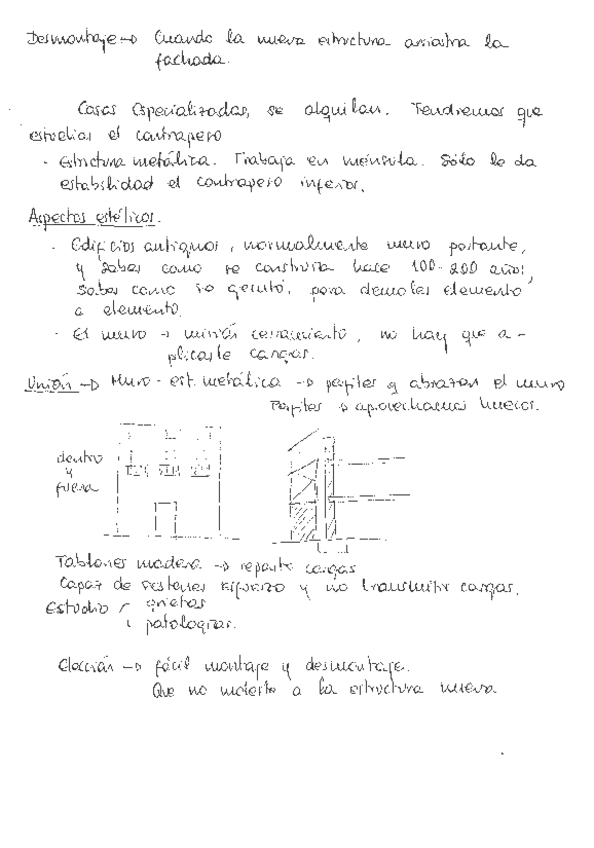 Desmontaje → Cuando la nueva estructura arriostra la
fachada.
Casas especializadas, se alquilan. Tendremos que
estudiar el contrapeso
· Estructura metálica. Trabaja en ménsula. Sólo le da
estabilidad el contrapeso inferior.
Aspectos estéticos.
· Edificios antiguos, normalmente muro portante,
y saber como se construía hace 100-200 años,
saber como se ejecutó, para demoler elemento
a elemento.
· El muro → cerramiento, no hay que a-
plicarle cargas.
Unión → Muro - est. metálica → perfiles q abrazan el muro
Perfiles → aprovechamos huecos.
dentro
y
fuera
Tablones madera → reparte cargas
Capaz de sostener esfuerzo y no transmitir cargas.
Estudio grietas
patologías.
Elección → fácil montaje y desmontaje.
Que no moleste a la estructura nueva